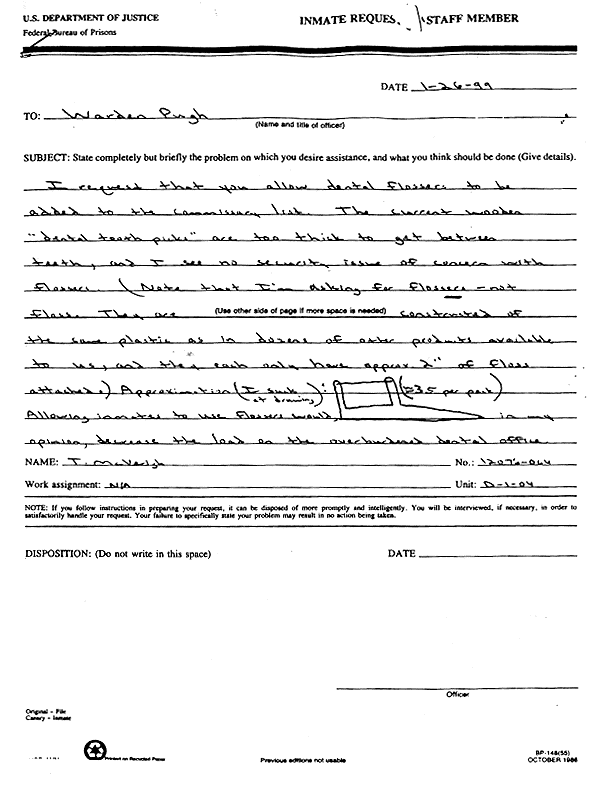 U.S. DEPARTMENT OF JUSTICE
Federal Bureau of Prisons
INMATE REQUES. STAFF MEMBER
DATE 1-26-99
TO: Warden Pugh
(Name and title of officer)
SUBJECT: State completely but briefly the problem on which you desire assistance, and what you think should be done (Give details).
I request that you allow dental flossers to be
added to the commissary list. The current wooden
"dental tooth picks" are too thick to get between
teeth, and I see no security issue of concern with
flossers. (Note that I'm asking for flossers - not
floss. They are (Use other side of page if more space is needed) constructed of
the same plastic as in dozens of other products available
to us, and they each only have approx 2" of floss
attached.) Approximation (I suck at drawing): (≈35 per pack)
Allowing inmates to use flossers would, in my
opinion, decrease the load on the overburdened dental office.
NAME: T. McVeigh No.: 12076-064
Work assignment: N/A Unit: D-1-04
NOTE: If you follow instructions in preparing your request, it can be disposed of more promptly and intelligently. You will be interviewed, if necessary, in order to
satisfactorily handle your request. Your failure to specifically state your problem may result in no action being taken.
DISPOSITION: (Do not write in this space) DATE
Officer
Original - File
Canary - Inmate
Printed on Recycled Paper
Previous editions not usable
BP-148(55)
OCTOBER 1986